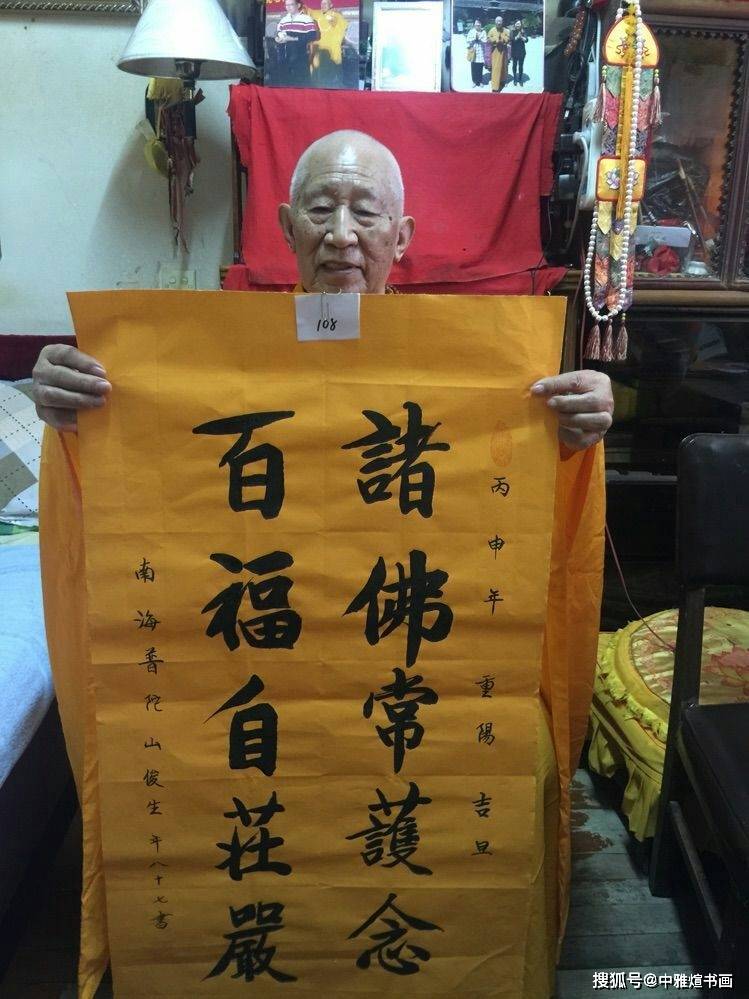 108
丙申年重陽吉旦
諸佛常護念
百福自莊嚴
南海普陀山俊生年八十七書
搜狐号@中雅煊书画